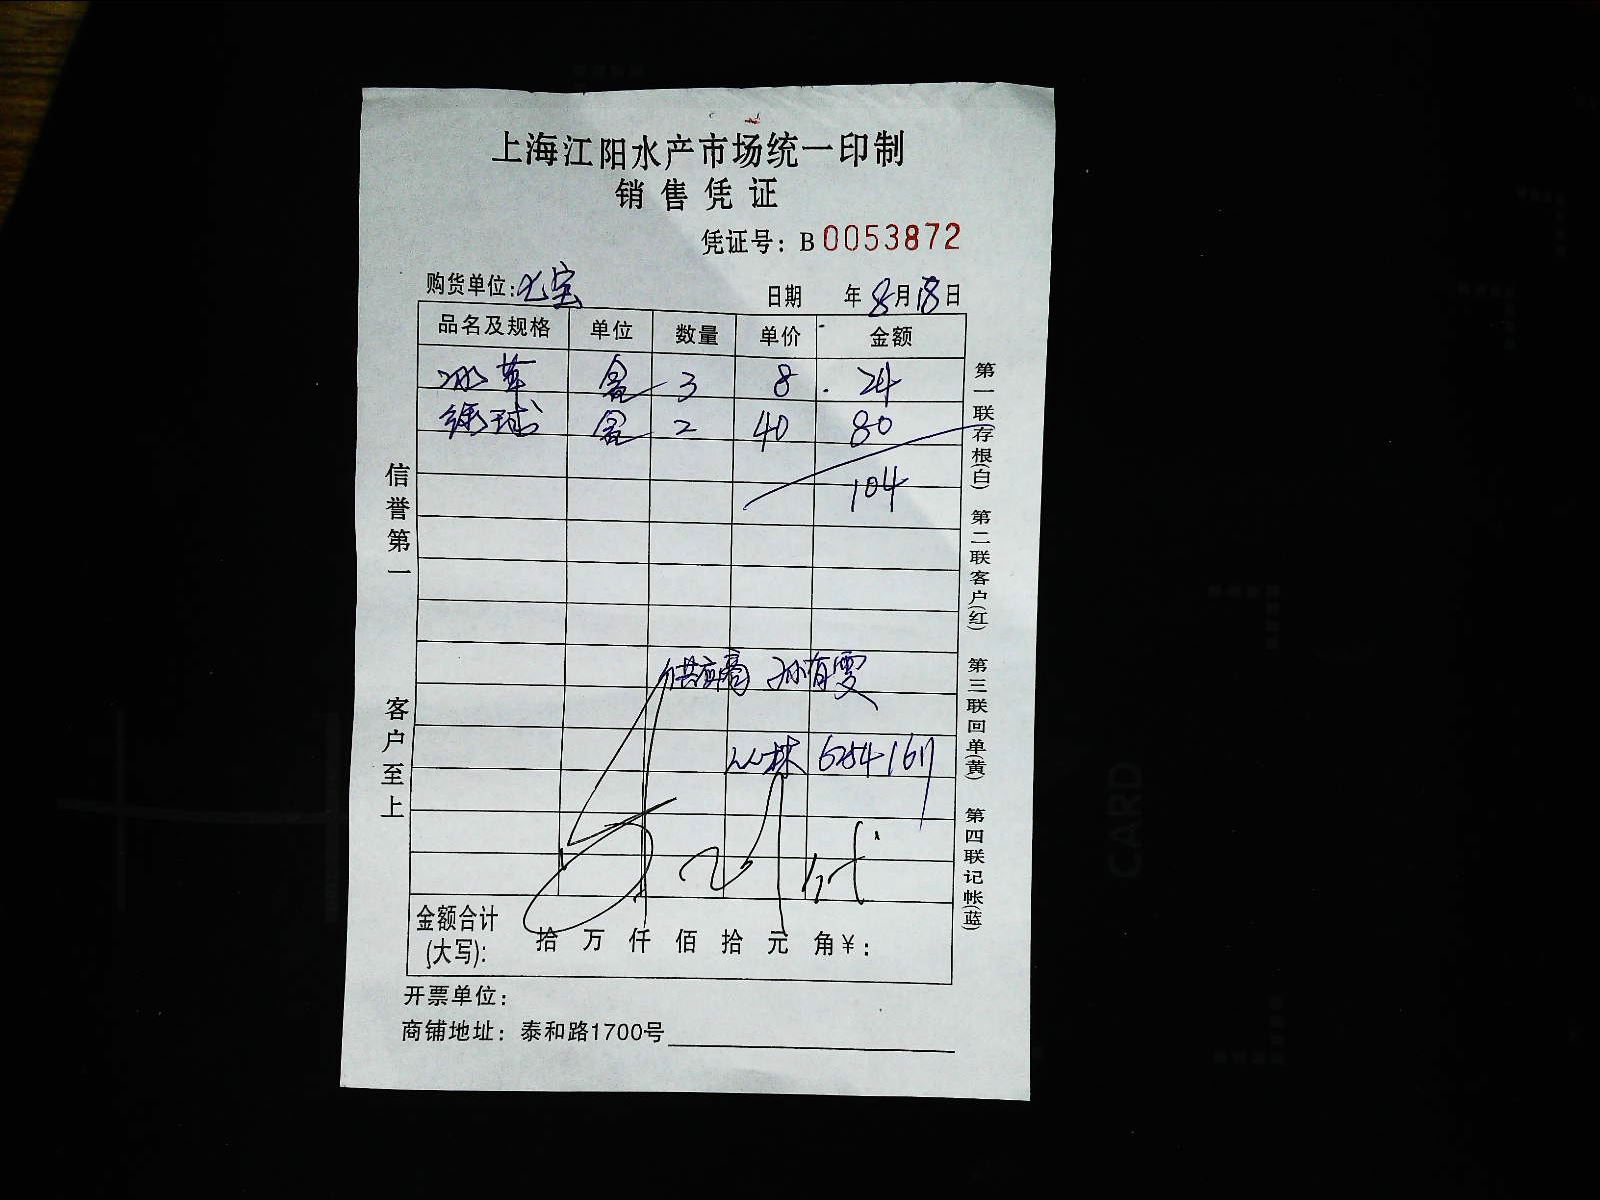 上海江阳水产市场统一印制
销售凭证
凭证号：B 0053872
购货单位：七宝 日期 年 8 月 18 日
品名及规格 单位 数量 单价 金额
冰草 盒 3 8 24
绣球 盒 2 40 80
104
供应商 孙有雯
丛林
信誉第一 客户至上
第一联存根(白) 第二联客户(红) 第三联回单(黄) 第四联记帐(蓝)
金额合计
(大写)： 拾 万 仟 佰 拾 元 角 ￥：
开票单位：
商铺地址：泰和路1700号